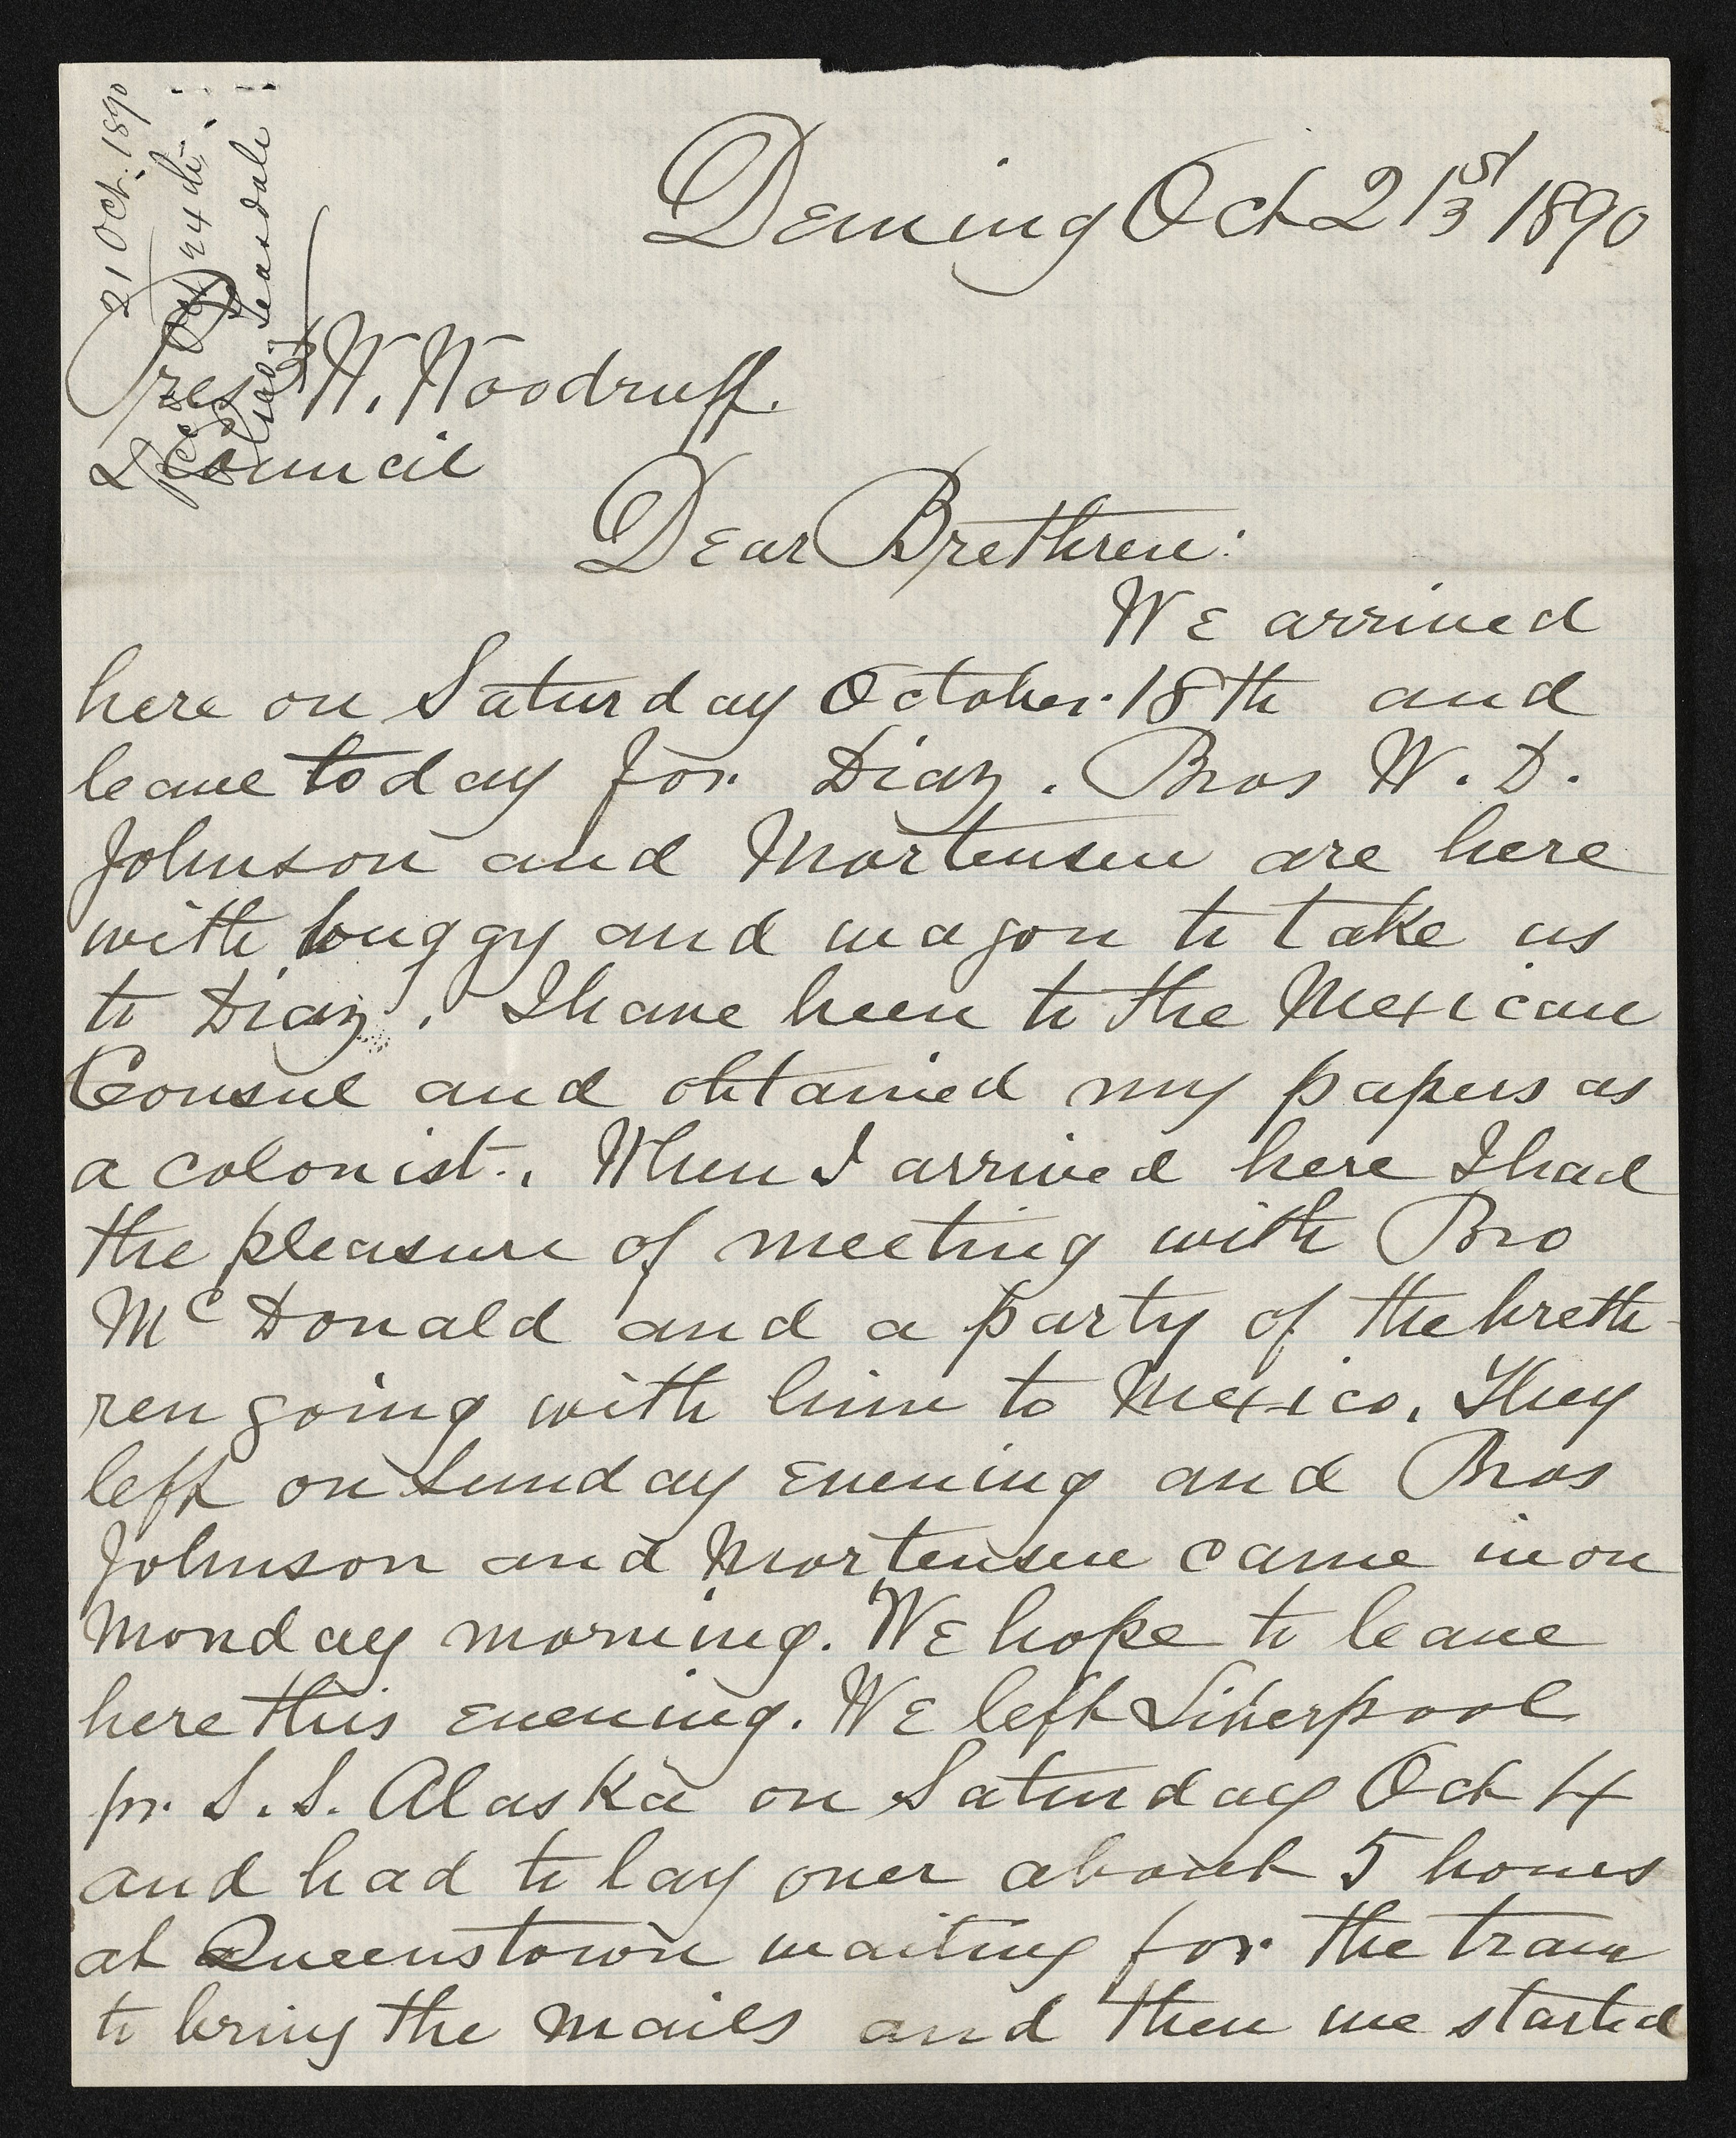 21 Oct. 1890
Geo. Teasdale
Deming Oct 21st 1890
Prest W. Woodruff.
& Council
Dear Brethren:
We arrived
here on Saturday October 18th and
leave today for Diaz. Bros W. D.
Johnson and Mortensen are here
with buggy and wagon to take us
to Diaz. I have been to the Mexican
Consul and obtained my papers as
a colonist. When I arrived here I had
the pleasure of meeting with Bro
McDonald and a party of the breth-
ren going with him to Mexico. They
left on Sunday evening and Bros
Johnson and Mortensen came in on
Monday morning. We hope to leave
here this evening. We left Liverpool
pr. S. S. Alaska on Saturday Oct 4
and had to lay over about 5 hours
at Queenstown waiting for the train
to bring the mails and then we started